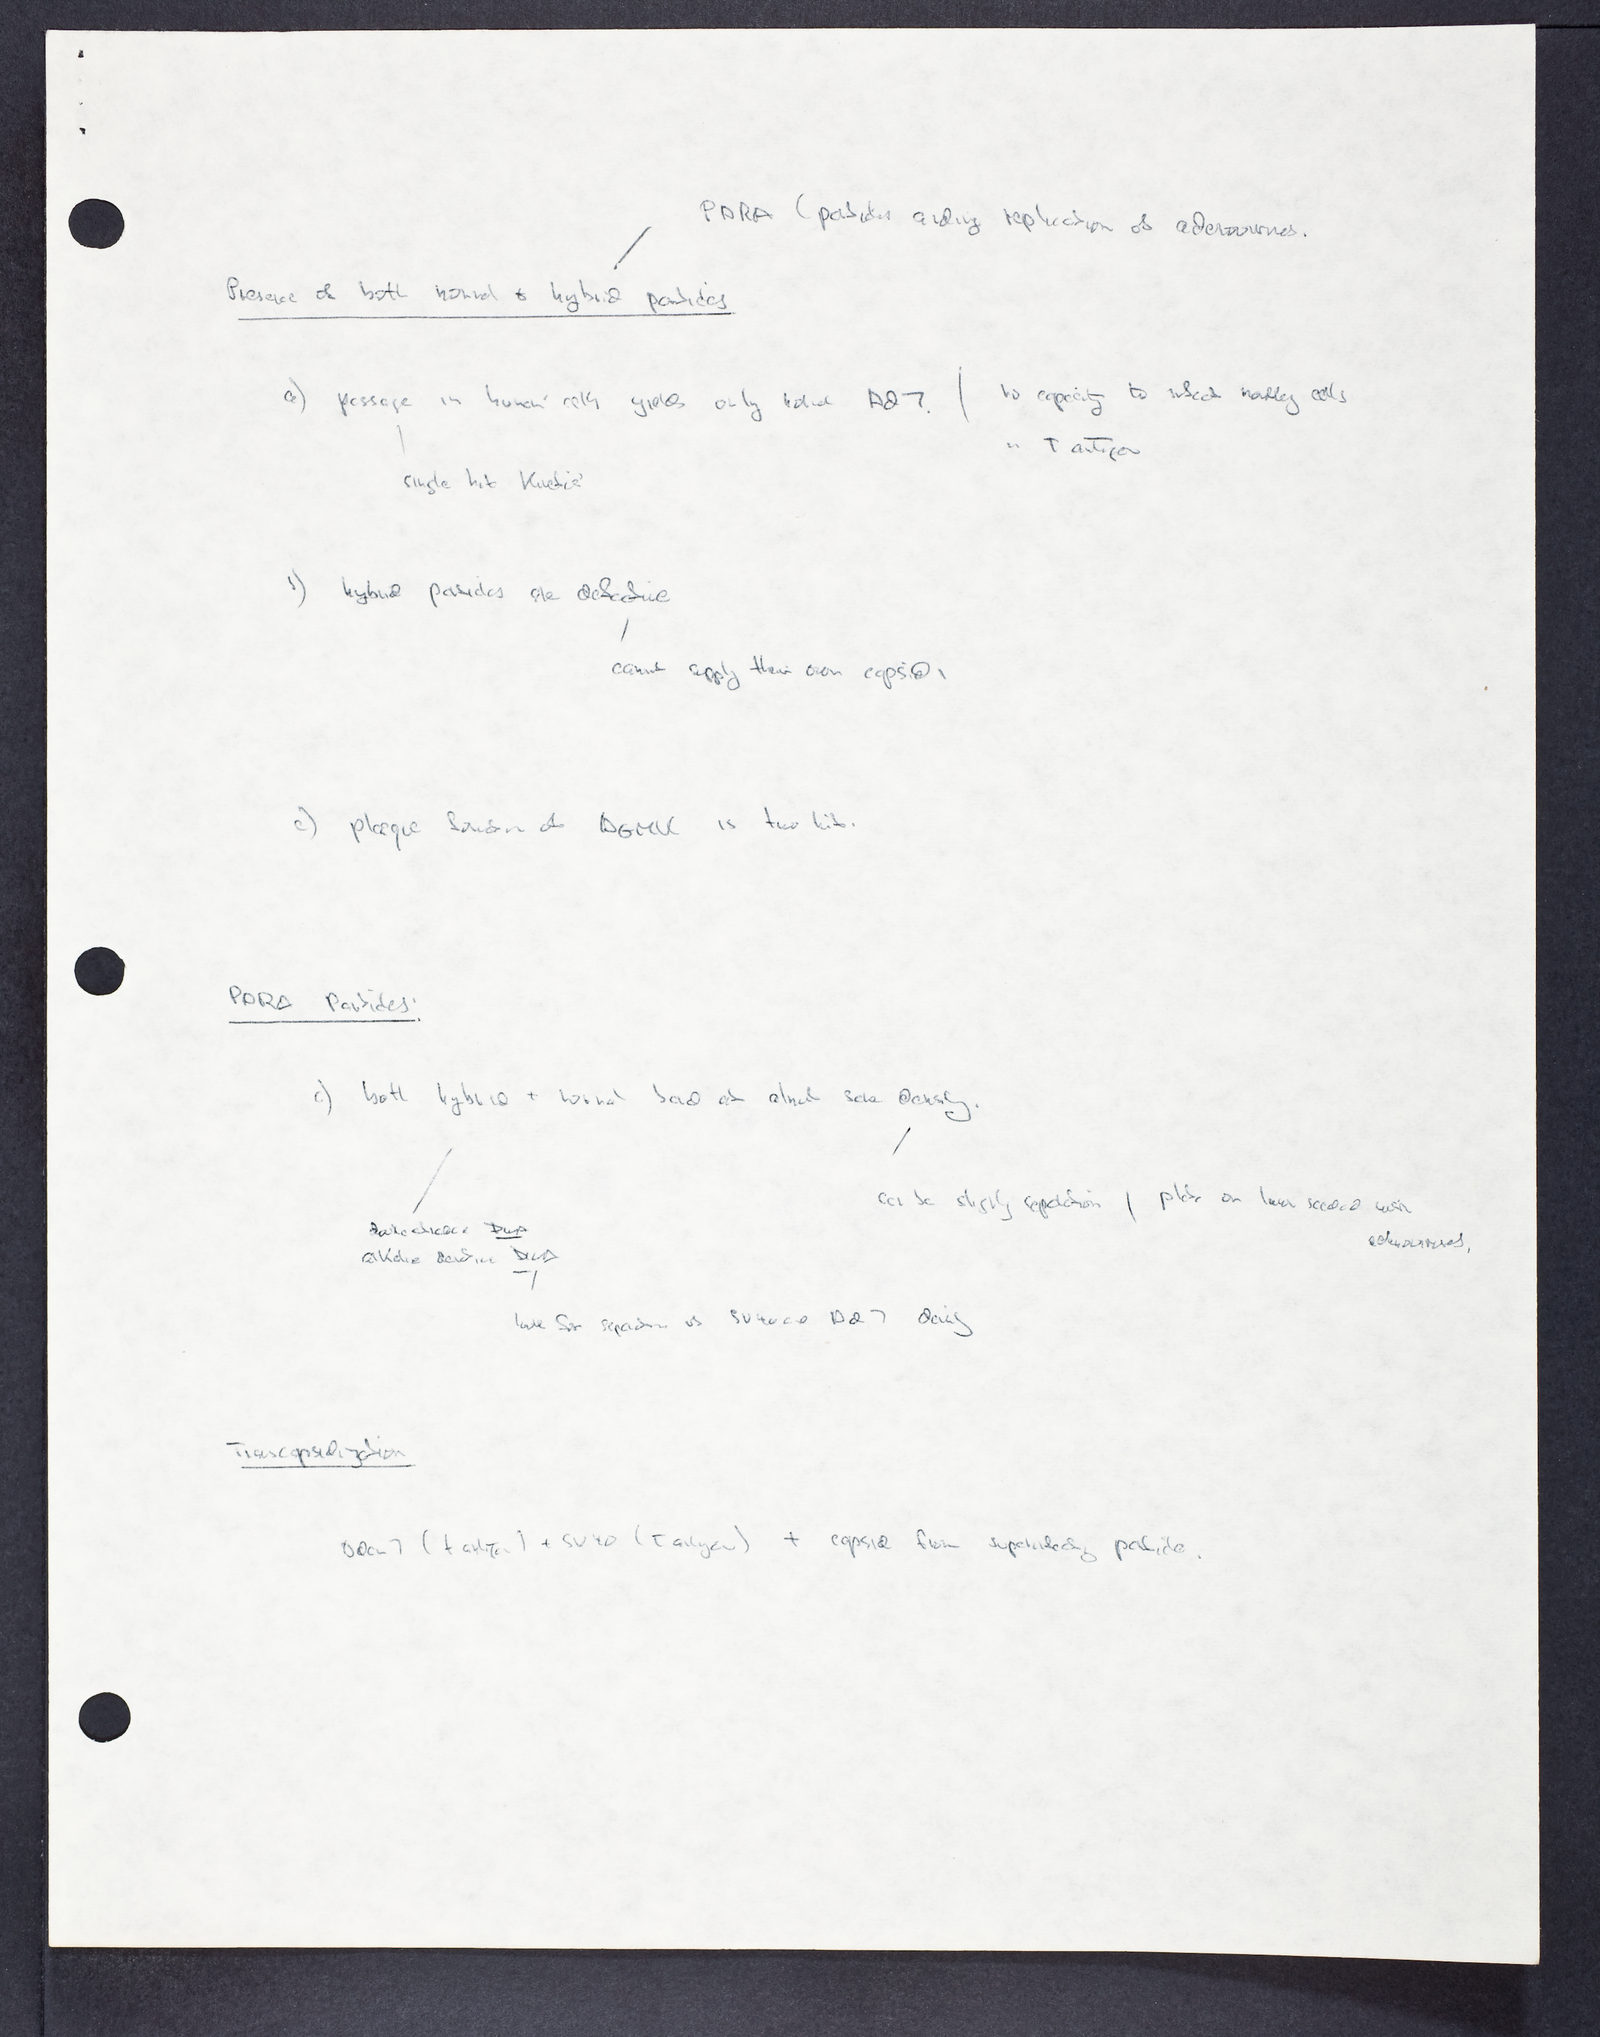 PARA (particles aiding replication of adenoviruses.
Presence of both normal + hybrid particles
a) passage in human cells yields only normal AD7. / no capacity to infect monkey cells
" T antigen
single hit kinetics
b) hybrid particles are defective
cannot supply their own capsid.
c) plaque formation of AGMK is two hit.
PARA Particles:
a) both hybrid + normal band at almost same density.
can be slightly separation / plate on lawn seeded with
adenoviruses.
DNA
alkaline DNA
separation of SV40 and AD7 density
Transcapsidization
Aden7 (t antigen) + SV40 (T antigen) + capsid from superinfecting particle.